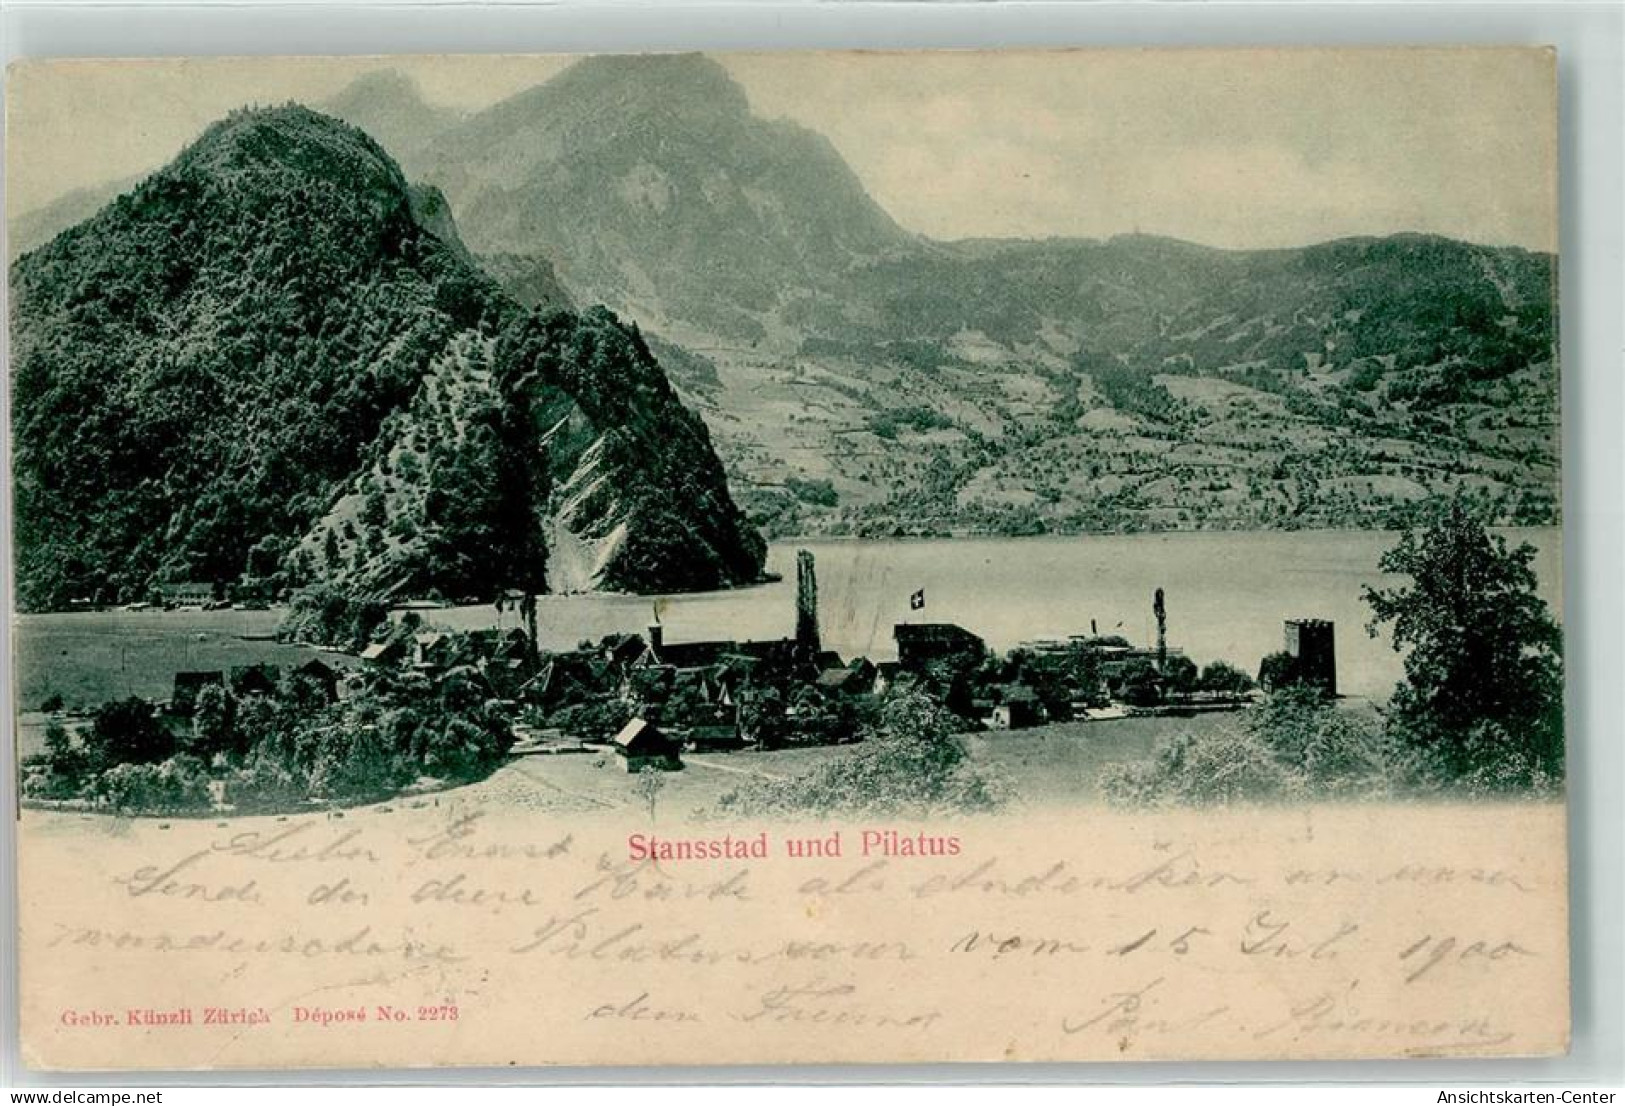 Stansstad und Pilatus
Lieber Ernst
Sende dir diese Karte als Andenken an unser
wunderschöne Pilatus tour vom 15 Juli 1900
dein Freund Paul
Gebr. Künzli Zürich Déposé No. 2273
oldthing
Ansichtskarten-Center